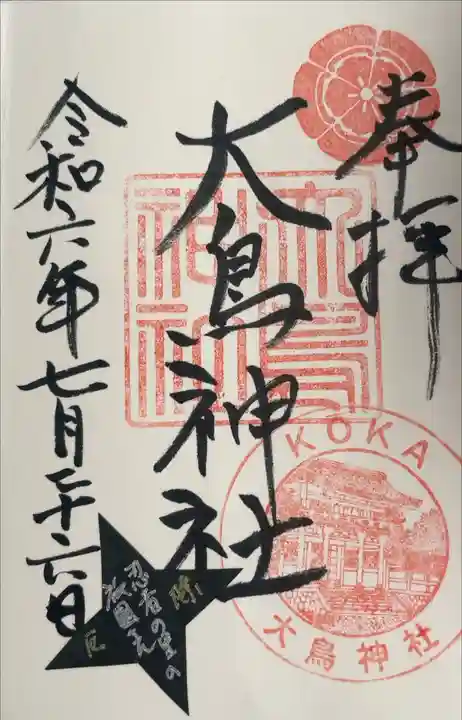 奉拝
大鳥神社
令和六年七月二十六日
大鳥神社
KOKA
大鳥神社
忍者の里の
祇園さん